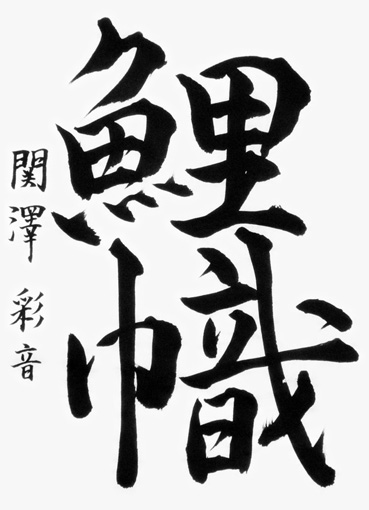 鯉幟
関澤 彩音